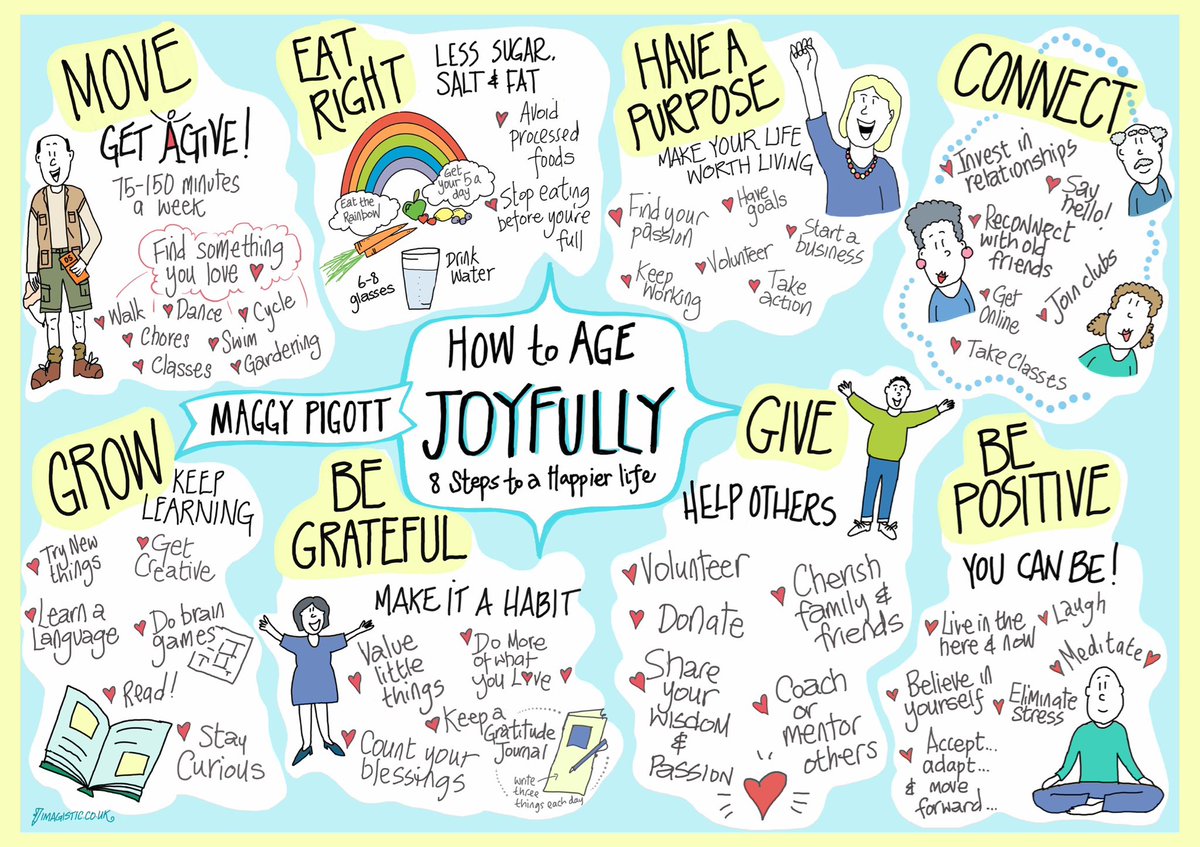 HOW to AGE
JOYFULLY
8 Steps to a Happier life
MAGGY PIGOTT
MOVE
GET ACTIVE!
75-150 minutes
a week
Find something
you love
Walk
Dance
Cycle
Chores
Swim
Classes
Gardening
OS
EAT
RIGHT
LESS SUGAR,
SALT & FAT
Avoid
processed
foods
Stop eating
before you're
full
Get
your 5 a
day
Eat the
Rainbow
6-8
glasses
Drink
Water
HAVE A
PURPOSE
MAKE YOUR LIFE
WORTH LIVING
Find your
passion
Have
goals
Start a
business
Volunteer
Keep
Working
Take
action
CONNECT
Invest in
relationships
Say
hello!
Reconnect
with old
friends
Get
Online
Join clubs
Take Classes
GROW
KEEP
LEARNING
Try New
things
Get
Creative
Learn a
Language
Do brain
games
Read!
Stay
Curious
BE
GRATEFUL
MAKE IT A HABIT
Value
little
things
Do More
of what
you Love
Keep a
Gratitude
Journal
Count your
blessings
write
three
things each day
GIVE
HELP OTHERS
Volunteer
Donate
Cherish
family &
friends
Share
your
WISDOM
&
PASSION
Coach
or
mentor
others
BE
POSITIVE
YOU CAN BE!
Live in the
here & now
Laugh
Meditate
Believe in
yourself
Eliminate
stress
Accept...
adapt...
& move
forward...
IMAGISTIC.CO.UK